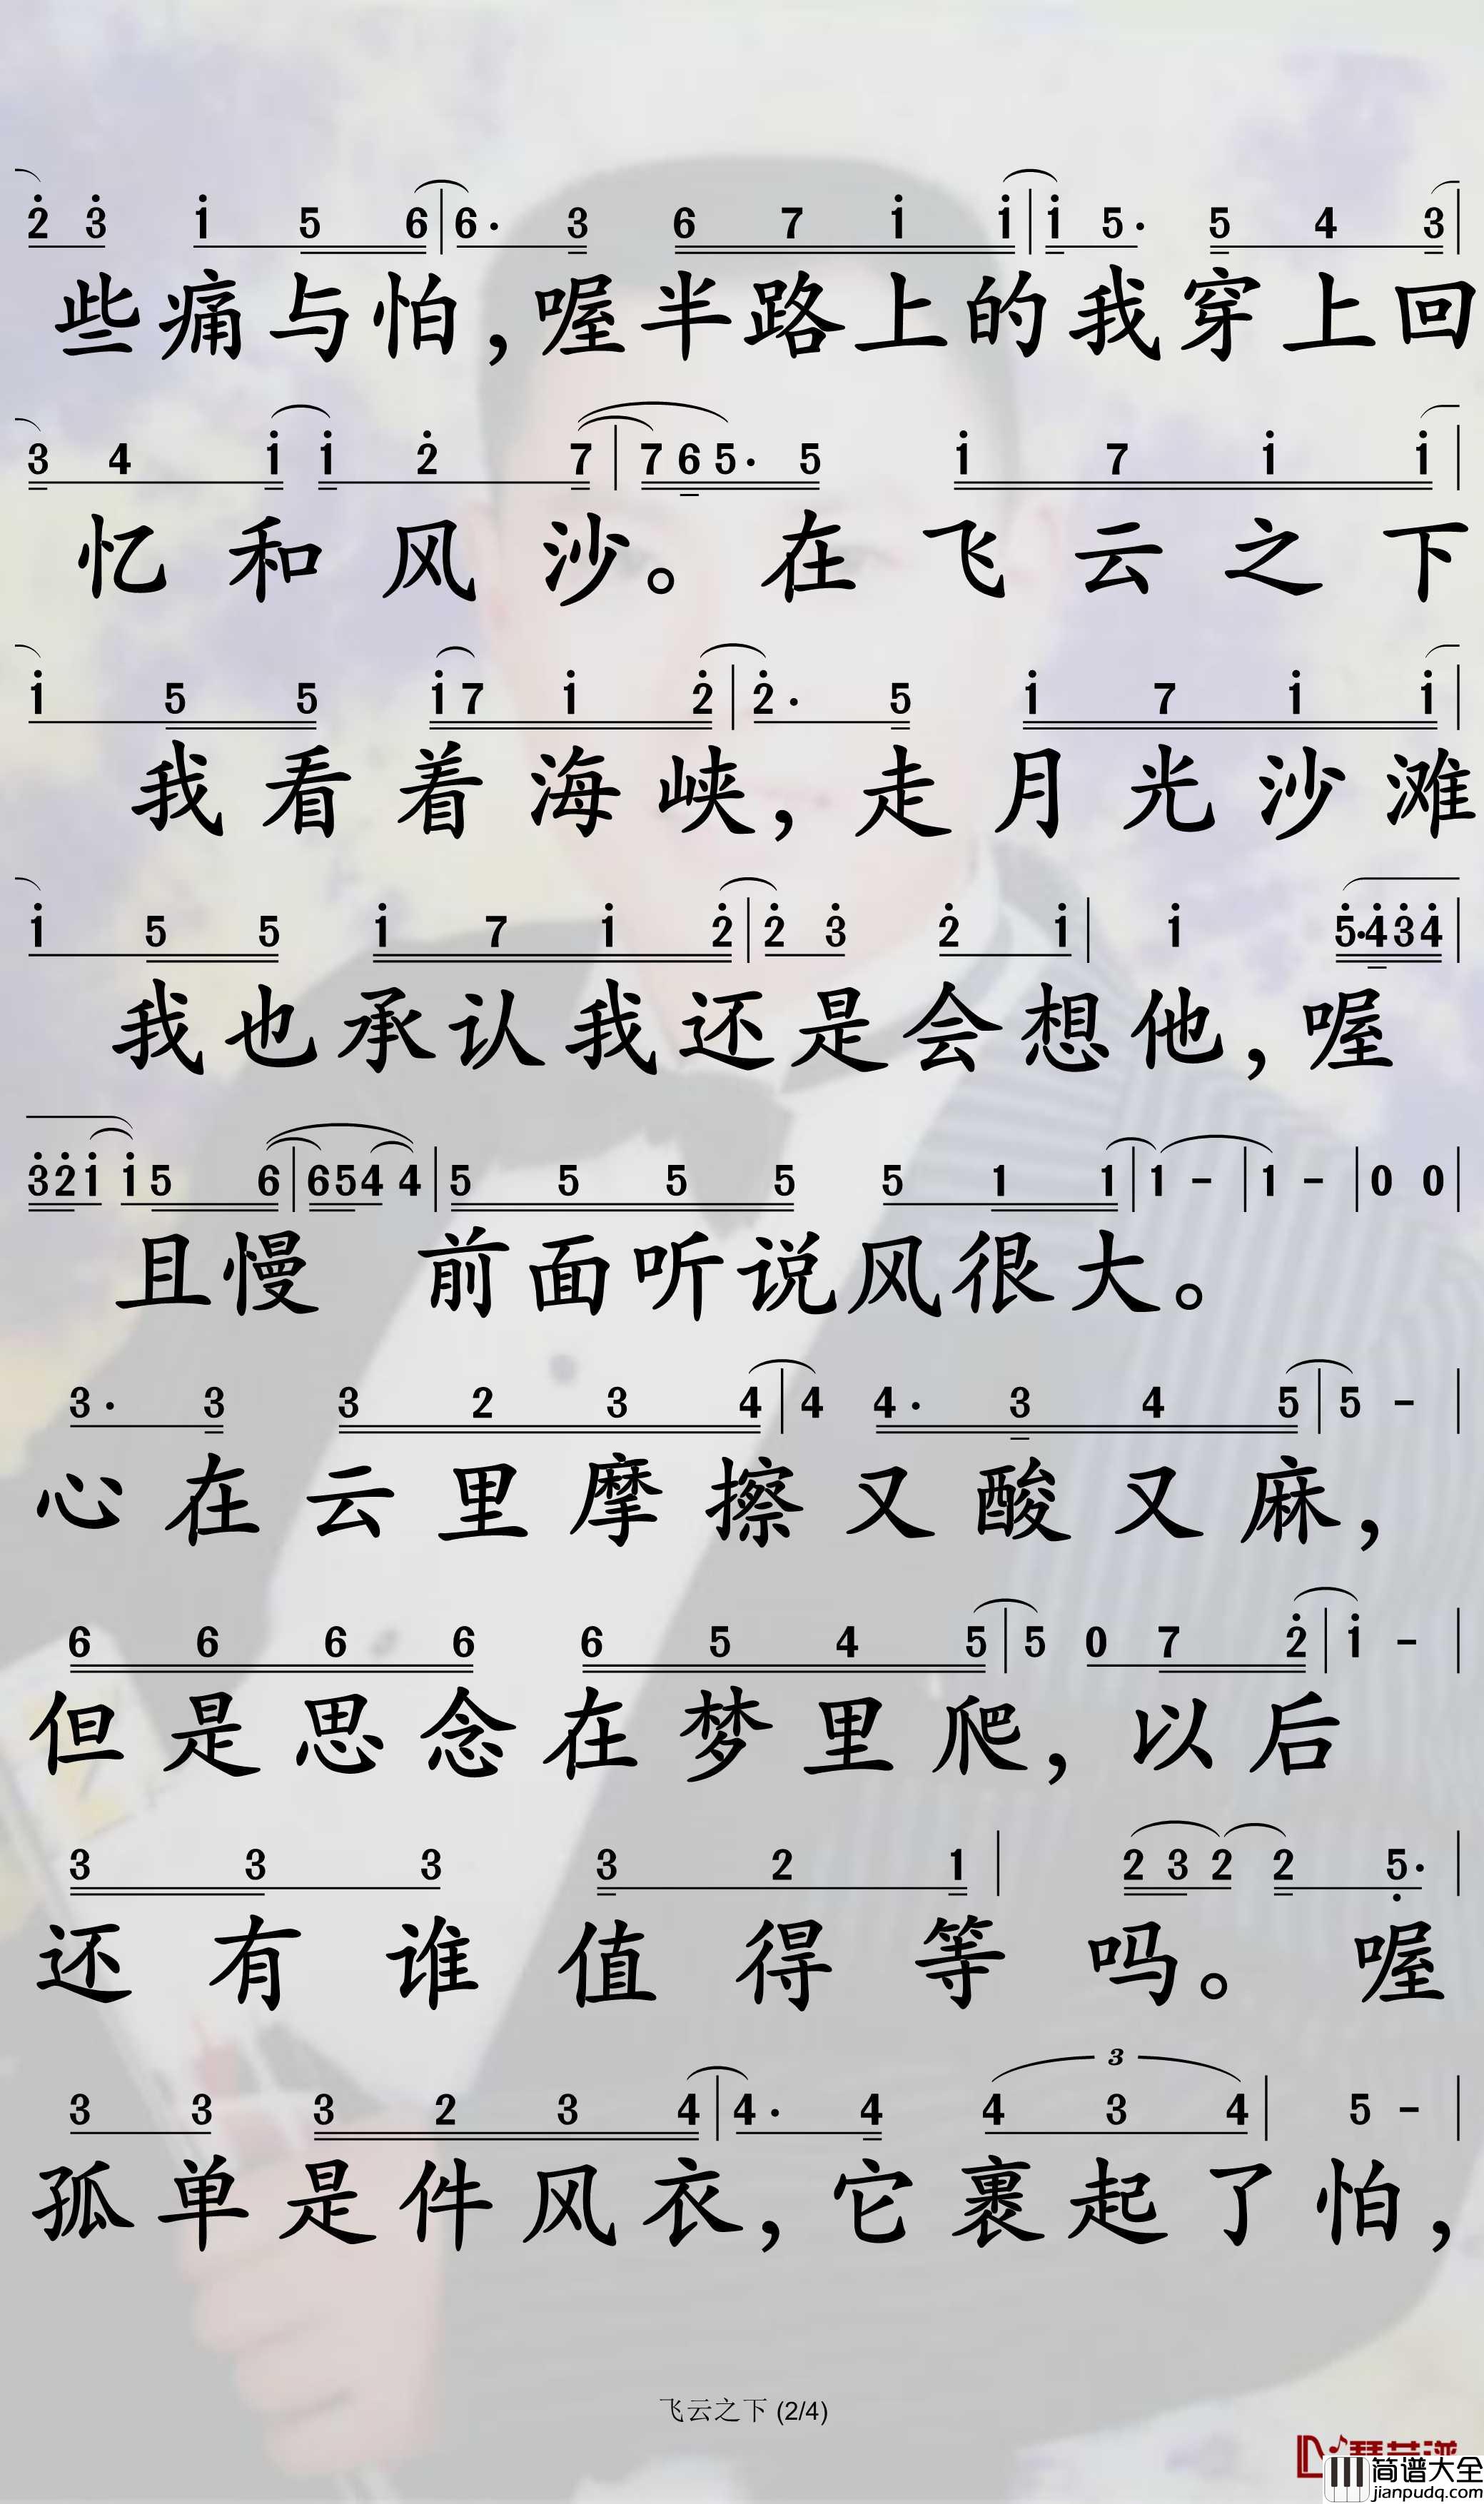 2 3 1 5 6 | 6· 3 6 7 1 1 | 1 5· 5 4 3 |
些痛与怕,喔半路上的我穿上回
3 4 1 1 2 7 | 7 6 5· 5 1 7 1 1 |
忆和风沙。在飞云之下
1 5 5 1 7 1 2 | 2· 5 1 7 1 1 |
我看着海峡,走月光沙滩
1 5 5 1 7 1 2 | 2 3 2 1 | 1 5·4 3 4 |
我也承认我还是会想他,喔
3 2 1 1 5 6 | 6 5 4 4 | 5 5 5 5 5 1 1 | 1 - | 1 - | 0 0 |
且慢 前面听说风很大。
3· 3 3 2 3 4 | 4 4· 3 4 5 | 5 - |
心在云里摩擦又酸又麻,
6 6 6 6 6 5 4 5 | 5 0 7 2 | 1 - |
但是思念在梦里爬,以后
3 3 3 3 2 1 | 2 3 2 2 5· |
还有谁值得等吗。喔
3
3 3 3 2 3 4 | 4· 4 4 3 4 | 5 - |
孤单是件风衣,它裹起了怕,
飞云之下 (2/4)
简谱大全
jianpudq.com